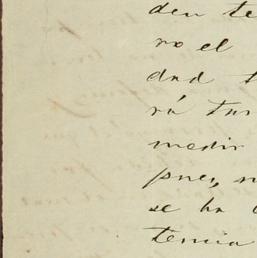 den te
ro el
dad t
rá tur
medir
pues, n
se ha
tenia